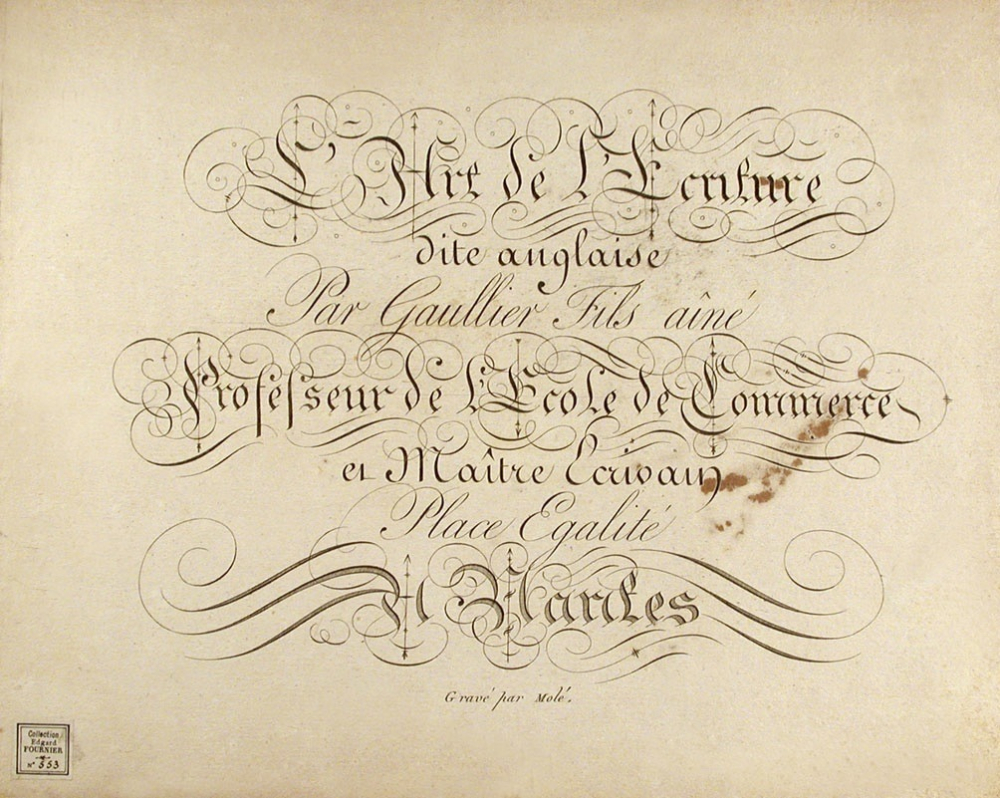 L'Art de l'Ecriture
dite anglaise
Par Gaullier Fils aîné
Professeur de l'Ecole de Commerce
et Maître Ecrivain
Place Egalité
A Nantes
Gravé par Molé.
Collection
Edgard
FOURNIER
N° 353